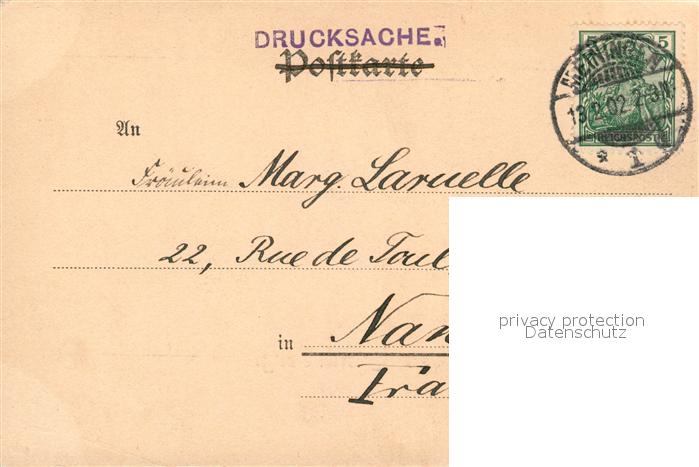 DRUCKSACHE.
Postkarte
5 5
REICHSPOST
13.2.02.2-3N.
* 1
An
Fräulein Marg. Laruelle
22, Rue de Toul
in Nan
Fra
privacy protection
Datenschutz